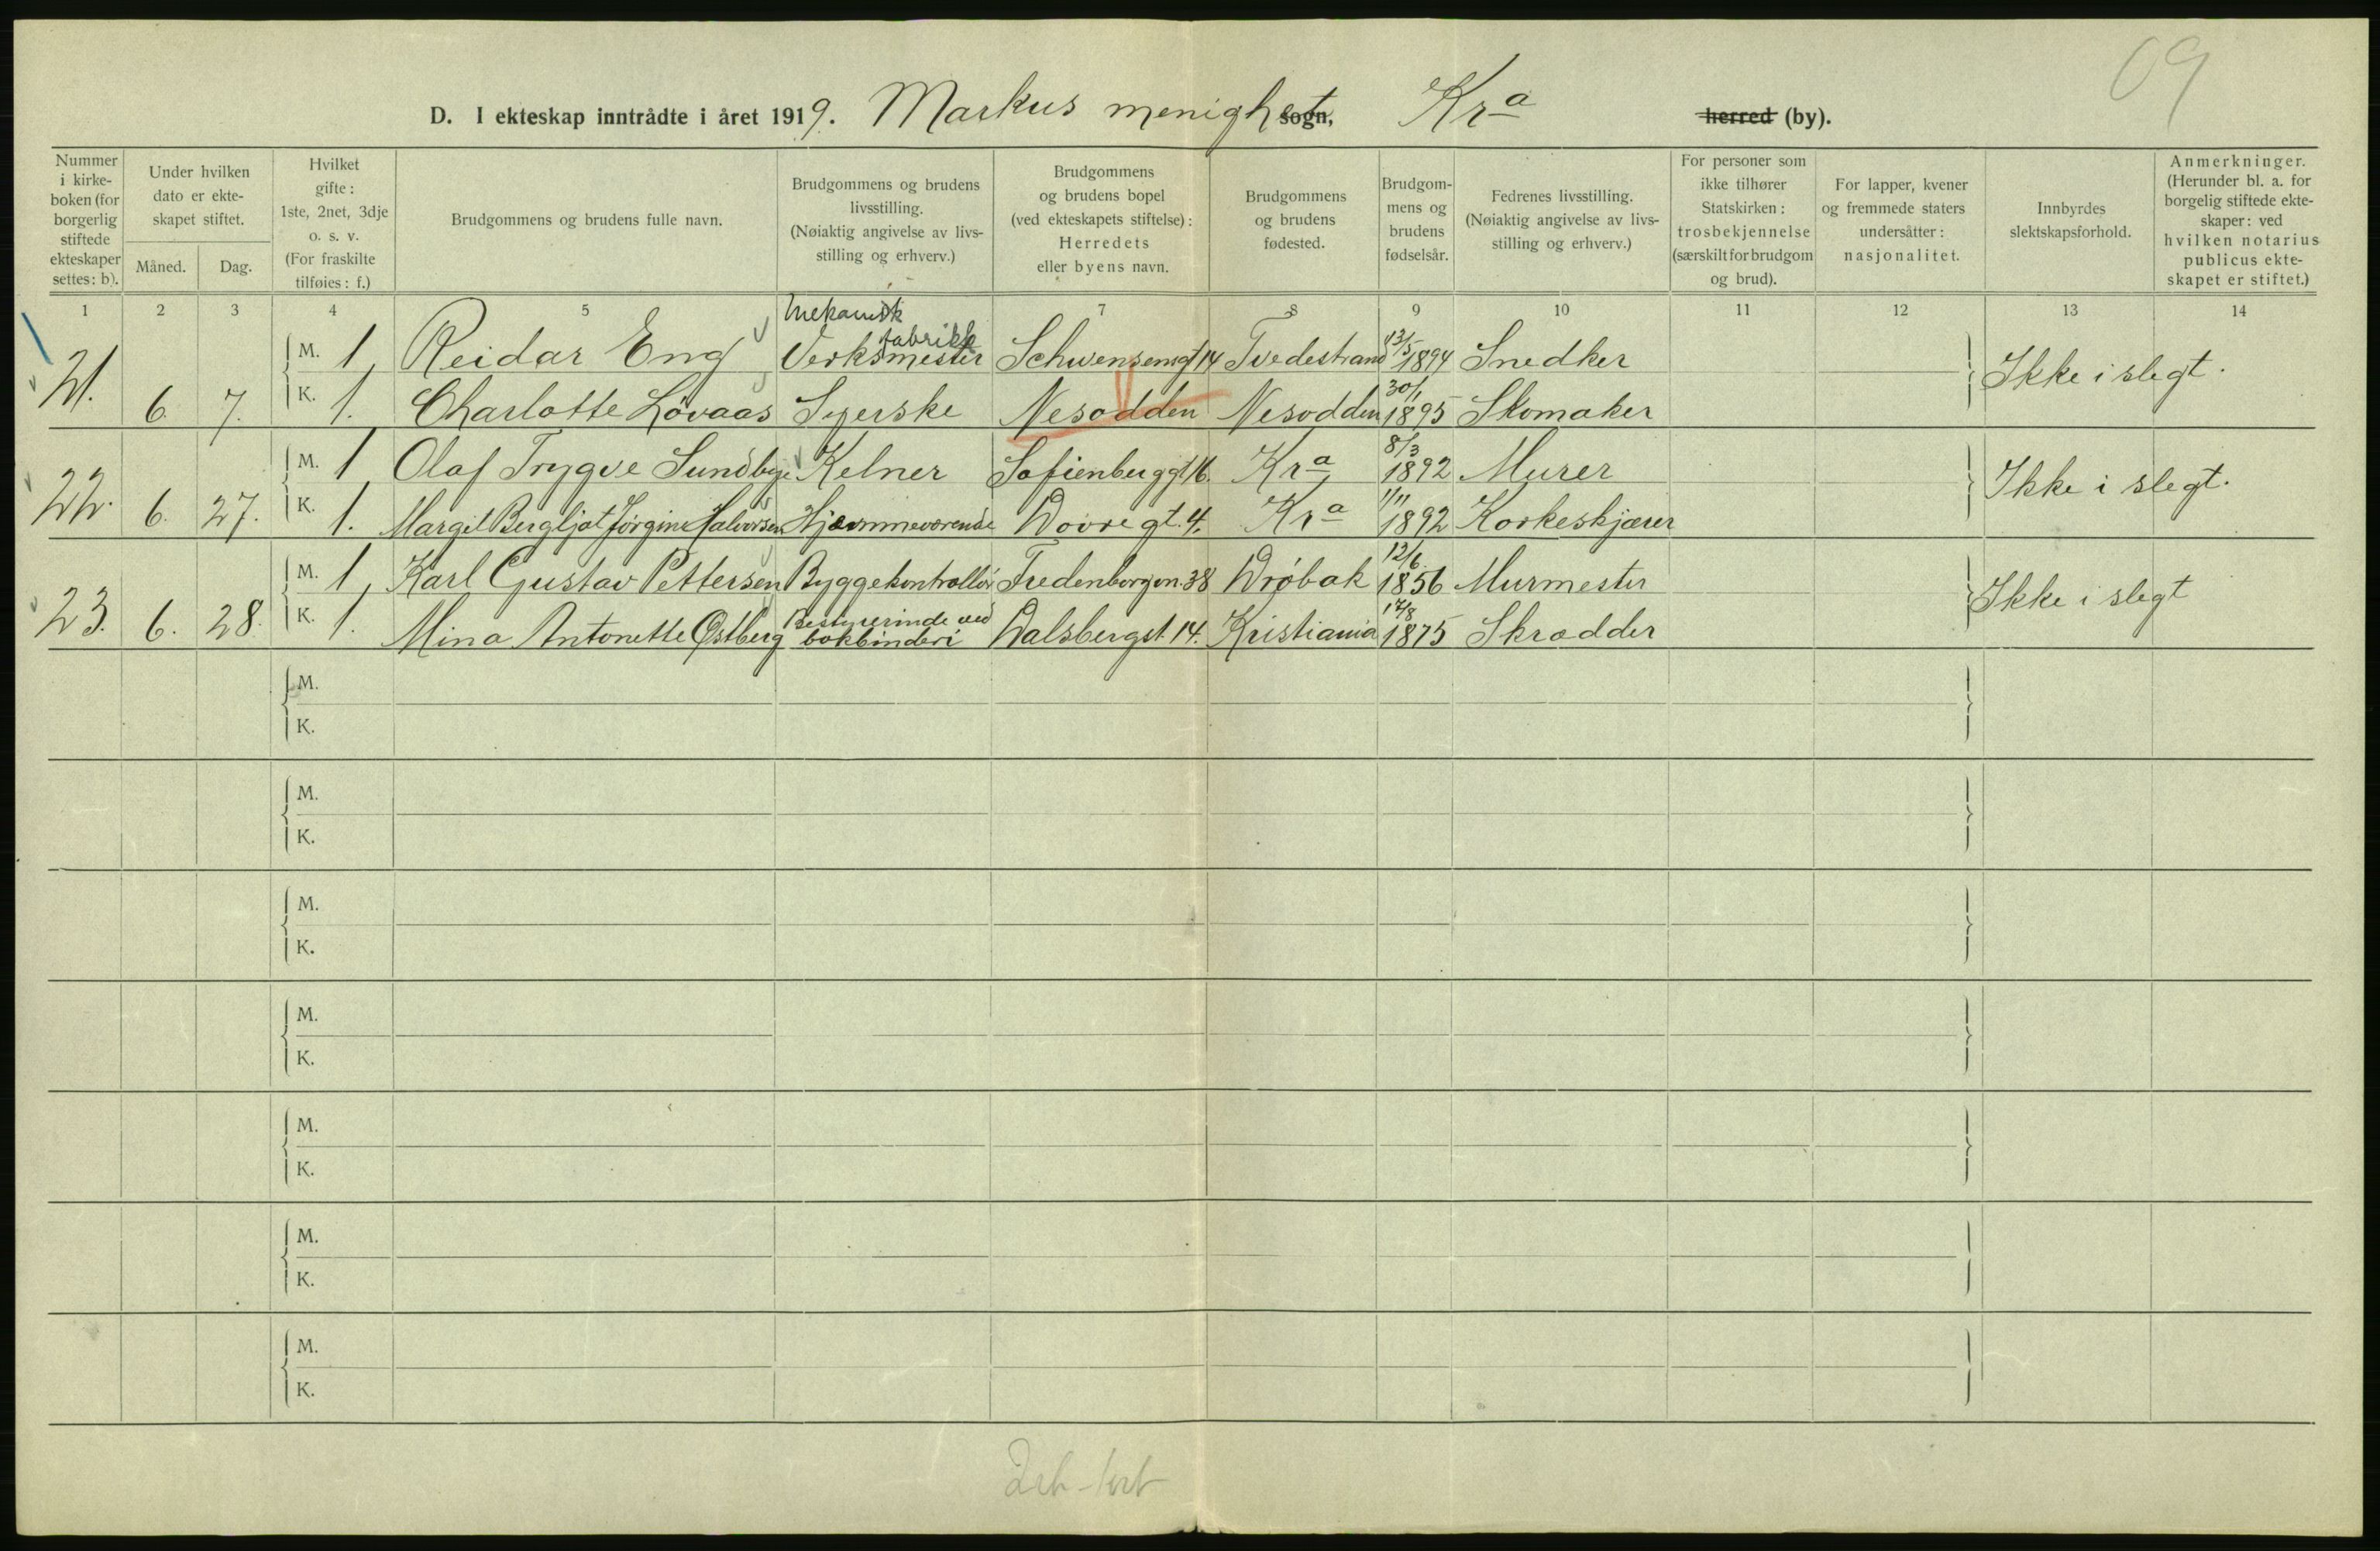 09
D. I ekteskap inntrådte i året 1919. Markus menighet sogn, Kra herred (by).
Nummer i kirkeboken (for borgerlig stiftede ekteskaper settes: b).
Under hvilken dato er ekteskapet stiftet.
Måned.
Dag.
Hvilket gifte: 1ste, 2net, 3dje o. s. v. (For fraskilte tilføies: f.)
Brudgommens og brudens fulle navn.
Brudgommens og brudens livsstilling. (Nøiaktig angivelse av livsstilling og erhverv.)
Brudgommens og brudens bopel (ved ekteskapets stiftelse): Herredets eller byens navn.
Brudgommens og brudens fødested.
Brudgommens og brudens fødselsår.
Fedrenes livsstilling. (Nøiaktig angivelse av livsstilling og erhverv.)
For personer som ikke tilhører Statskirken: trosbekjennelse (særskilt for brudgom og brud).
For lapper, kvener og fremmede staters undersåtter: nasjonalitet.
Innbyrdes slektskapsforhold.
Anmerkninger. (Herunder bl. a. for borgelig stiftede ekteskaper: ved hvilken notarius publicus ekteskapet er stiftet.)
1 2 3 4 5 6 7 8 9 10 11 12 13 14
M. 1, Reidar Eng Mekanisk fabrikk Verksmester Schwensensgt 14 Tvedestrand 13/5 1894 Snedker
21. 6. 7. K. 1. Charlotte Løvaas Syerske Nesodden Nesodden 30/1 1895 Skomaker Ikke i slegt.
M. 1 Olaf Trygve Sundbye Kelner Sofienberggt 16. Kra 8/3 1892 Murer
22. 6. 27. K. 1. Margit Bergljot Jørgine Halvorsen Hjemmeværende Dovregt. 4. Kra 1/11 1892 Korkeskjærer Ikke i slegt.
M. 1, Karl Gustav Pettersen Byggekontrollør Fredenborgvn. 38 Drøbak 12/6 1856 Murmester
23. 6. 28. K. 1. Mina Antonette Østberg Bestyrerinde ved bokbinderi Dalsbergst. 14. Kristiania 17/8 1875 Skrædder Ikke i slegt
M.
K.
M.
K.
M.
K.
M.
K.
M.
K.
M.
K.
M.
K.